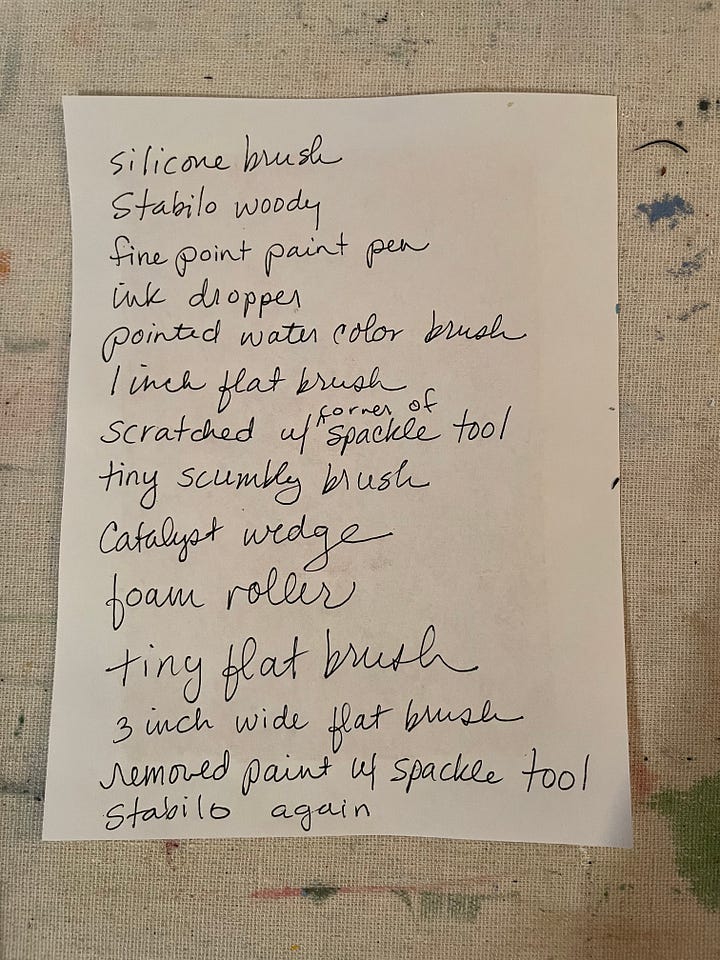 silicone brush
Stabilo woody
fine point paint pen
ink dropper
pointed water color brush
1 inch flat brush
scratched w/ corner of spackle tool
tiny scumbly brush
Catalyst wedge
foam roller
tiny flat brush
3 inch wide flat brush
removed paint w/ spackle tool
Stabilo again